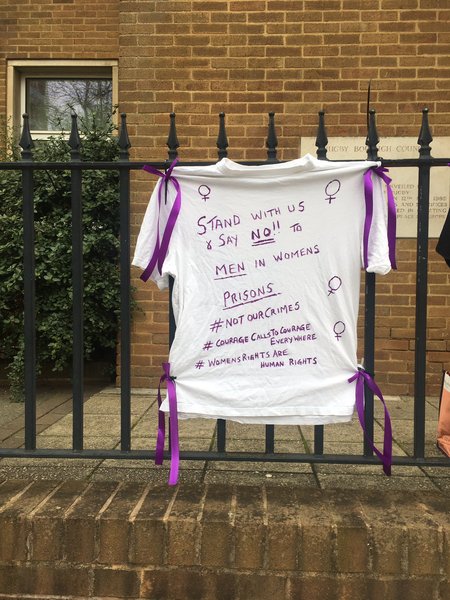 STAND WITH US
& SAY NO!! TO
MEN IN WOMENS
PRISONS
#NOTOURCRIMES
#COURAGE CALLS TO COURAGE
EVERYWHERE
#WOMENSRIGHTS ARE
HUMAN RIGHTS
UGBY BOROUGH COUNC